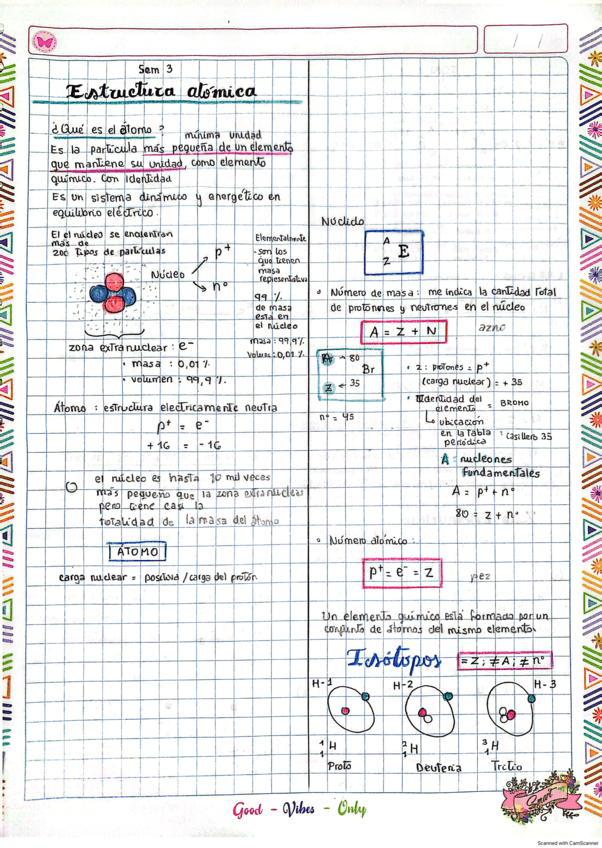 / /
Sem 3
Estructura atómica
¿Qué es el átomo?
mínima unidad
Es la partícula más pequeña de un elemento
que mantiene su unidad, como elemento
químico. Con identidad
Es un sistema dinámico y energético en
equilibrio eléctrico.
El el núcleo se encuentran
más de
200 tipos de partículas
Núcleo
p+
n°
Elementalmente
- son los
que tienen
masa
representativa
99 %
de masa
está en
el núcleo
masa : 99,9%
Volum : 0,01%
zona extranuclear : e-
• masa : 0,01%
• volumen : 99,9%
Átomo : estructura electricamente neutra
p+ = e-
+16 = -16
el núcleo es hasta 10 mil veces
más pequeño que la zona extranuclear
pero tiene casi la
totalidad de la masa del átomo
ÁTOMO
carga nuclear = positiva / carga del protón
Nuclido
A
Z
E
Número de masa : me indica la cantidad total
de protónnes y neutrones en el núcleo
A = Z + N
A ← 80
Br
Z ← 35
n° = 45
• Z : protones = p+
(carga nuclear) = + 35
• Identidad del
elemento = BROMO
ubicación
en la tabla
periódica : Casillero 35
A : nucleones
fundamentales
A = p+ + n°
80 = Z + n°
Número atómico :
p+ = e- = Z
pez
Un elemento químico está formado por un
conjunto de átomos del mismo elemento.
Isótopos
= Z ; ≠ A ; ≠ n°
H-1
H-2
H-3
1 1 H
2 1 H
3 1 H
Proto
Deuteria
Trctio
Good - Vibes - Only
Smart
Scanned with CamScanner